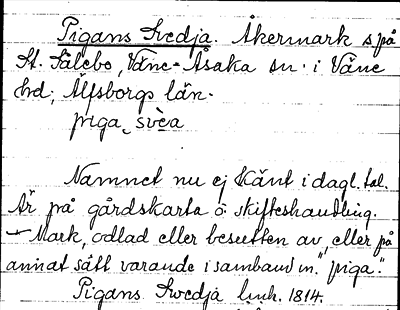 Pigans Svedja. Åkermark s på
St. Fälebo, Väne-Åsaka sn. i Väne
hd; Älfsborgs län.
piga, svèa
Namnet nu ej känt i dagl. tal.
Är på gårdskarta o. skifteshandling.
– Mark, odlad eller besutten av, eller på
annat sätt varande i samband m. "piga".
Pigans Swedja 1814.